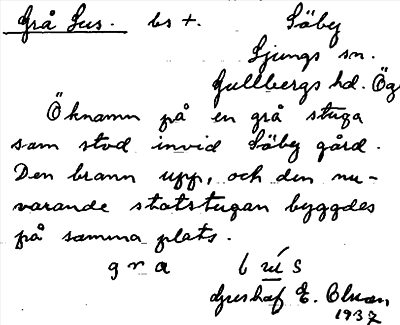 Grå Lus. bs +. Säby
Ljungs sn.
Gullbergs hd. Ög
Öknamn på en grå stuga
som stod invid Säby gård.
Den brann upp, och den nu-
varande statstugan byggdes
på samma plats.
g r a l ú s
E. Olsson
1937